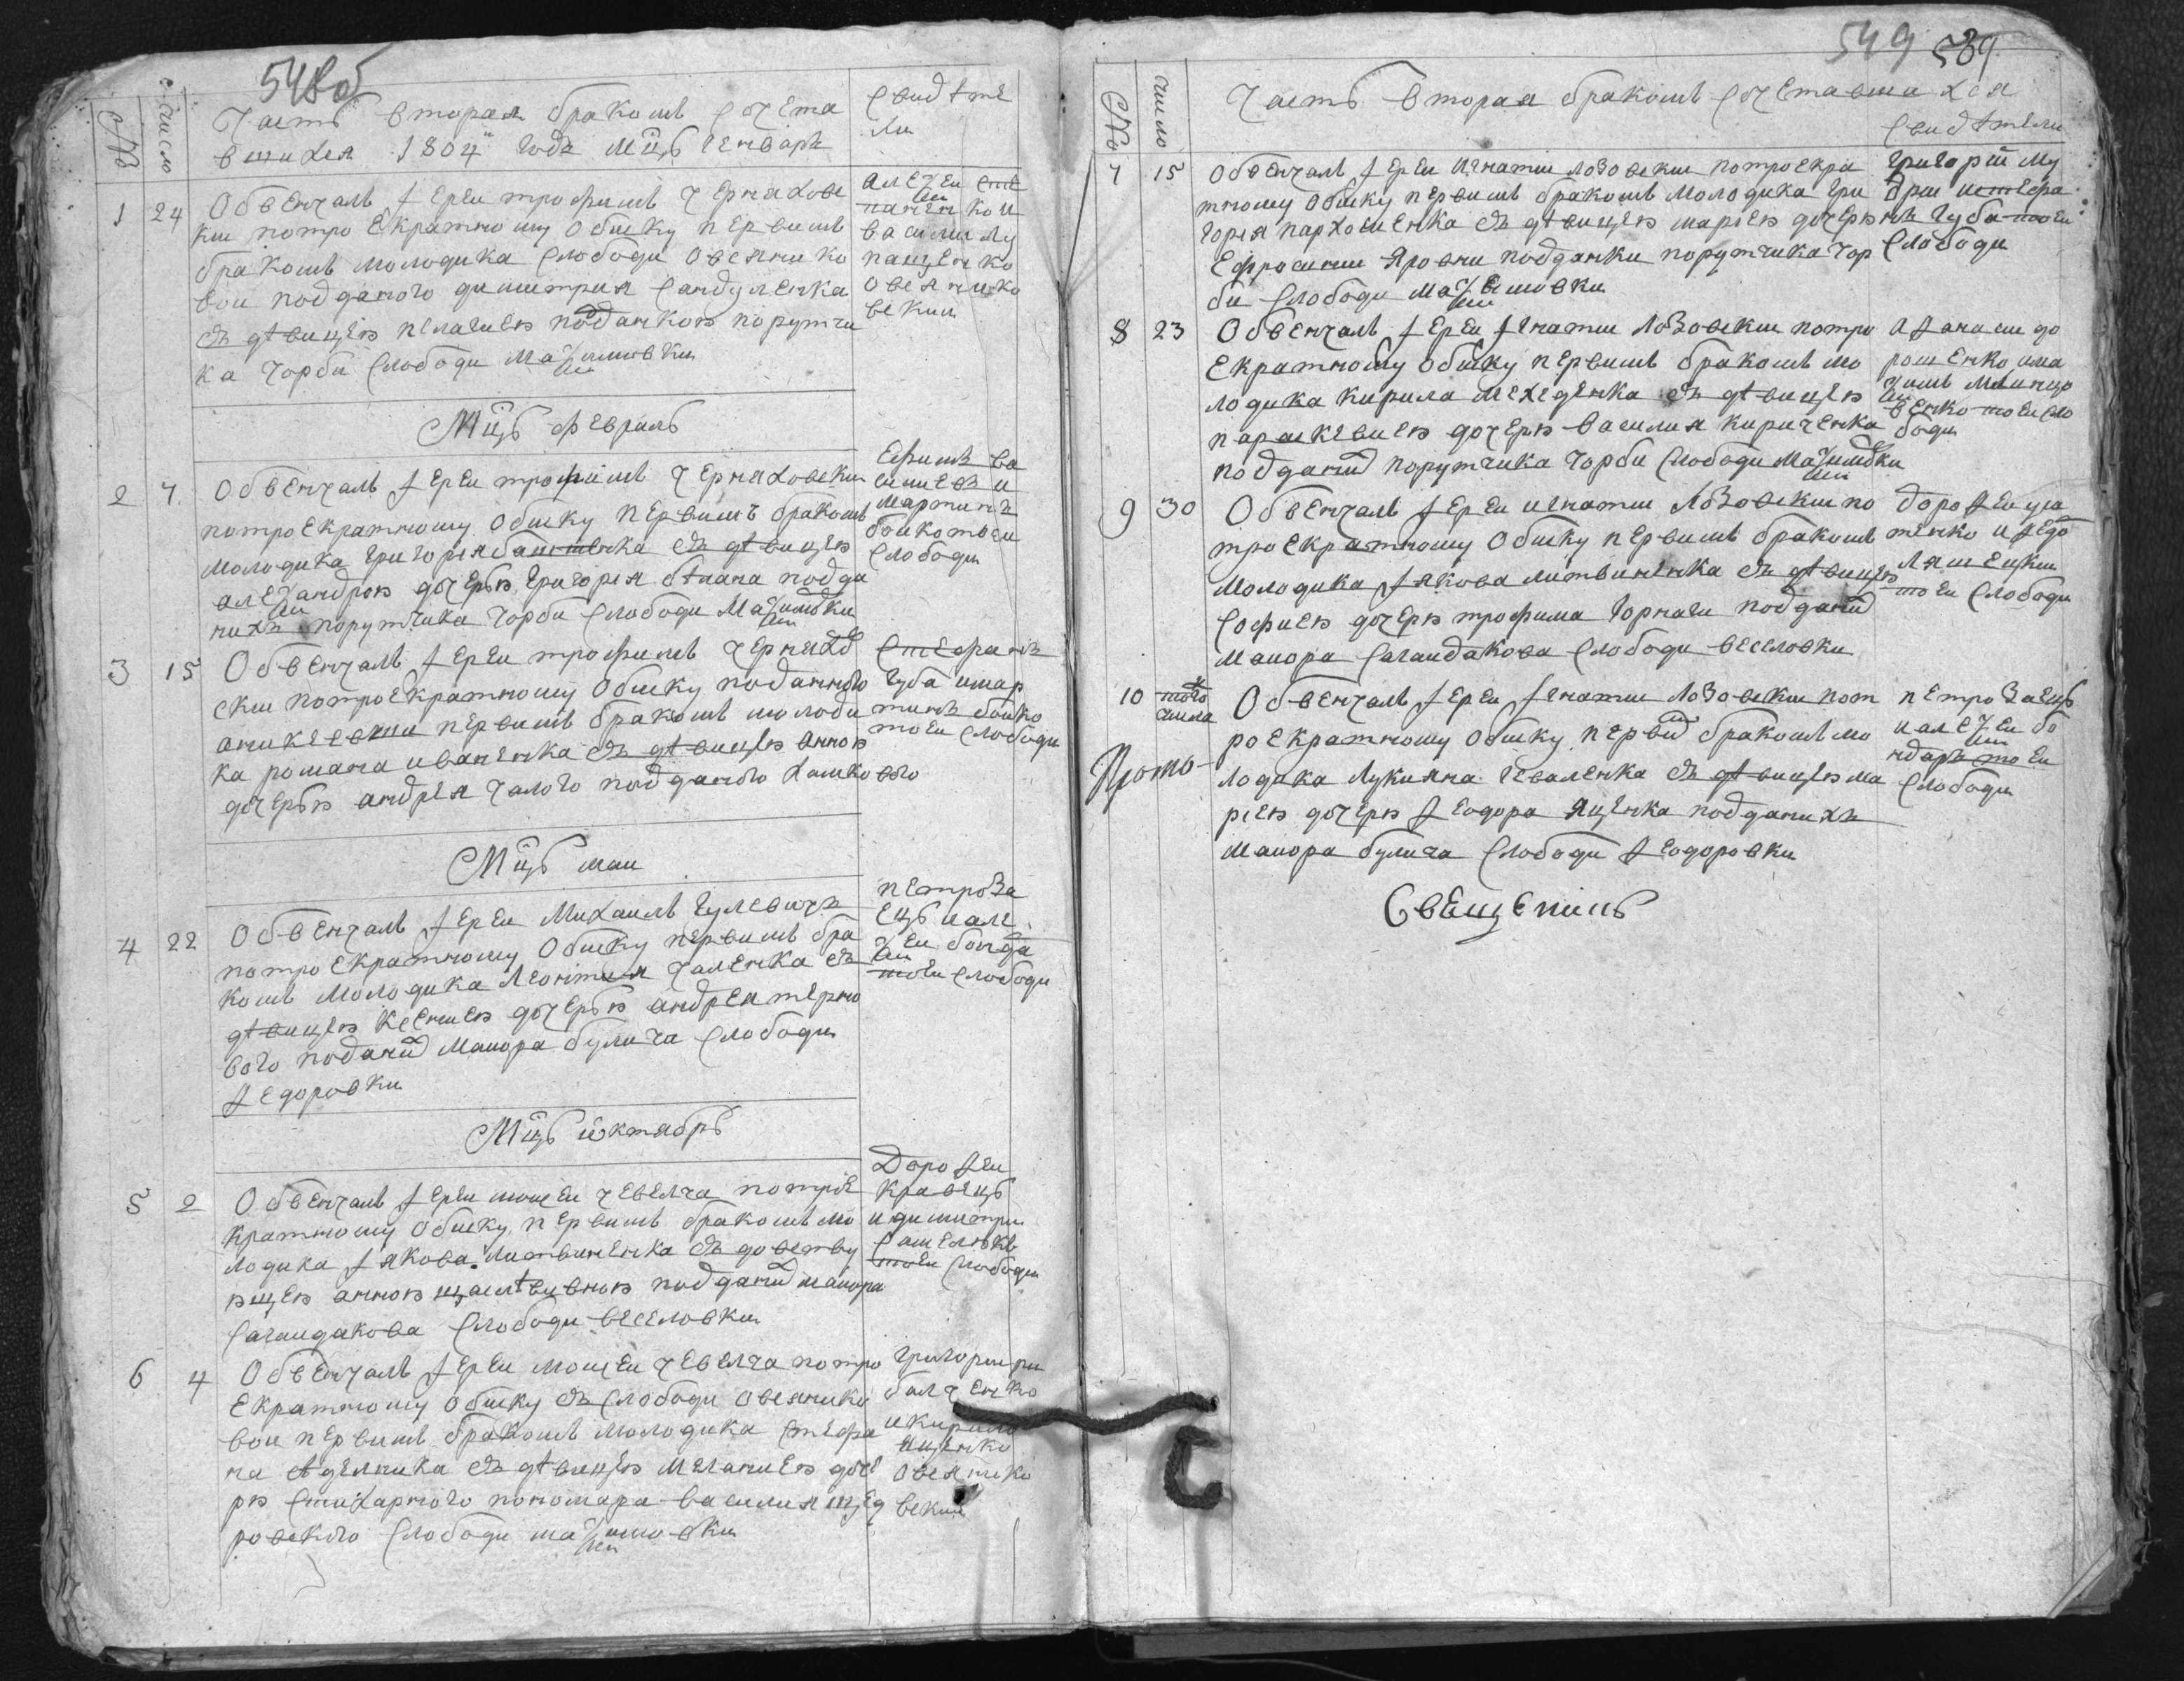 548об
№
Число
Часть вторая бракомъ сочета
вшихся 1804 года мцъ генваръ
Свидѣте
ли
1 24 Обвенчалъ іерей трофимъ черняхов
ски потроекратному обиску первимъ
бракомъ молодика слободи овсянико
вои подданого димитрия сандуленка
съ дѣвицею пелагиею подданкою поручи
ка чорби слободи максимовки
Алексеи сте
паненко и
василии лу
пащенко
овсянико
вскии
Мцъ февраль
2 7 Обвенчалъ іерей трофимъ черняховски
потроекратному обиску первимъ бракомъ
молодика григория съ дѣвицею
александрою дочерью григория подда
нихъ порутчика чорби слободи максимовки
Ефимъ ва
силиевъ и
мартинъ
боико тоеи
слободи
3 15 Обвенчалъ іерей трофимъ черняхов
ски потроекратному обиску поданного
аникеевши первимъ бракомъ молоди
ка романа иваненка съ дѣвицею анною
дочерью андрея чалого подданого хашкового
Стефанъ
губа имар
тинъ боико
тоеи слободи
Мцъ маи
4 22 Обвенчалъ іерей Михаилъ гулевичъ
потроекратному обиску первимъ бра
комъ молодика леонтия чаленка съ
дѣвицею ксениею дочерью андрея терно
вого подданих маиора булича слободи
ѳедоровки
петро за
ецъ иале
ксеи бонда
тоеи слободи
Мцъ октябръ
5 2 Обвенчалъ іерей моисеи чевелча потрое
кратному обиску первимъ бракомъ мо
лодика іякова литвиненка съ довству
ющею анною подданих маиора
сагаидакова слободи веселовки
Дороѳеи
кравецъ
и димитри
тоеи слободи
6 4 Обвенчалъ іерей моисеи чевелча потро
екратному обиску съ слободи овсянико
вои первимъ бракомъ молодика стефа
на съ дѣвицею меланиею доче
рю стихарного пономара василия щед
ровского слободи максимовки
григори ри
балченко
и кирило
яценко
овсянико
вскии
549 539
№
число
Часть вторая бракомъ сочетавши хся
свидѣтели
7 15 Обвенчалъ іерей игнатии лозовски потроекра
тному обиску первимъ бракомъ молодика гри
гория пархоменка съ дѣвицею мариею дочерью
ефросинии яровни подданки порутчика чор
би слободи максимовки
григорій му
дри истефа
нъ губа тоеи
слободи
8 23 Обвенчалъ іерей ігнатии лозовски потро
екратному обиску первимъ бракомъ мо
лодика кирила мехеденка съ дѣвицею
параскевиею дочерю василия кириченка
подданих порутчика чорби слободи максимовки
Аѳанасии до
рошенко има
ксимъ
венко тоеи сло
боди
9 30 Обвенчалъ іерей игнатии лозовски по
троекратному обиску первимъ бракомъ
молодика іякова литвиненка съ дѣвицею
софиею дочерю трофима горкаги подданих
маиора сагаидакова слободи веселовки
дороѳеи
тенко иѳедо
ляшецкии
тоеи слободи
10 того числа Обвенчалъ іерей ігнатии лозовски пот
роекратному обиску первим бракомъ мо
лодика лукияна коваленка съ дѣвицею ма
риею дочерю ѳеодора яценка подданихъ
маиора булича слободи ѳеодоровки
петро заецъ
иалексеи бо
ндаръ тоеи
слободи
Свещеникъ